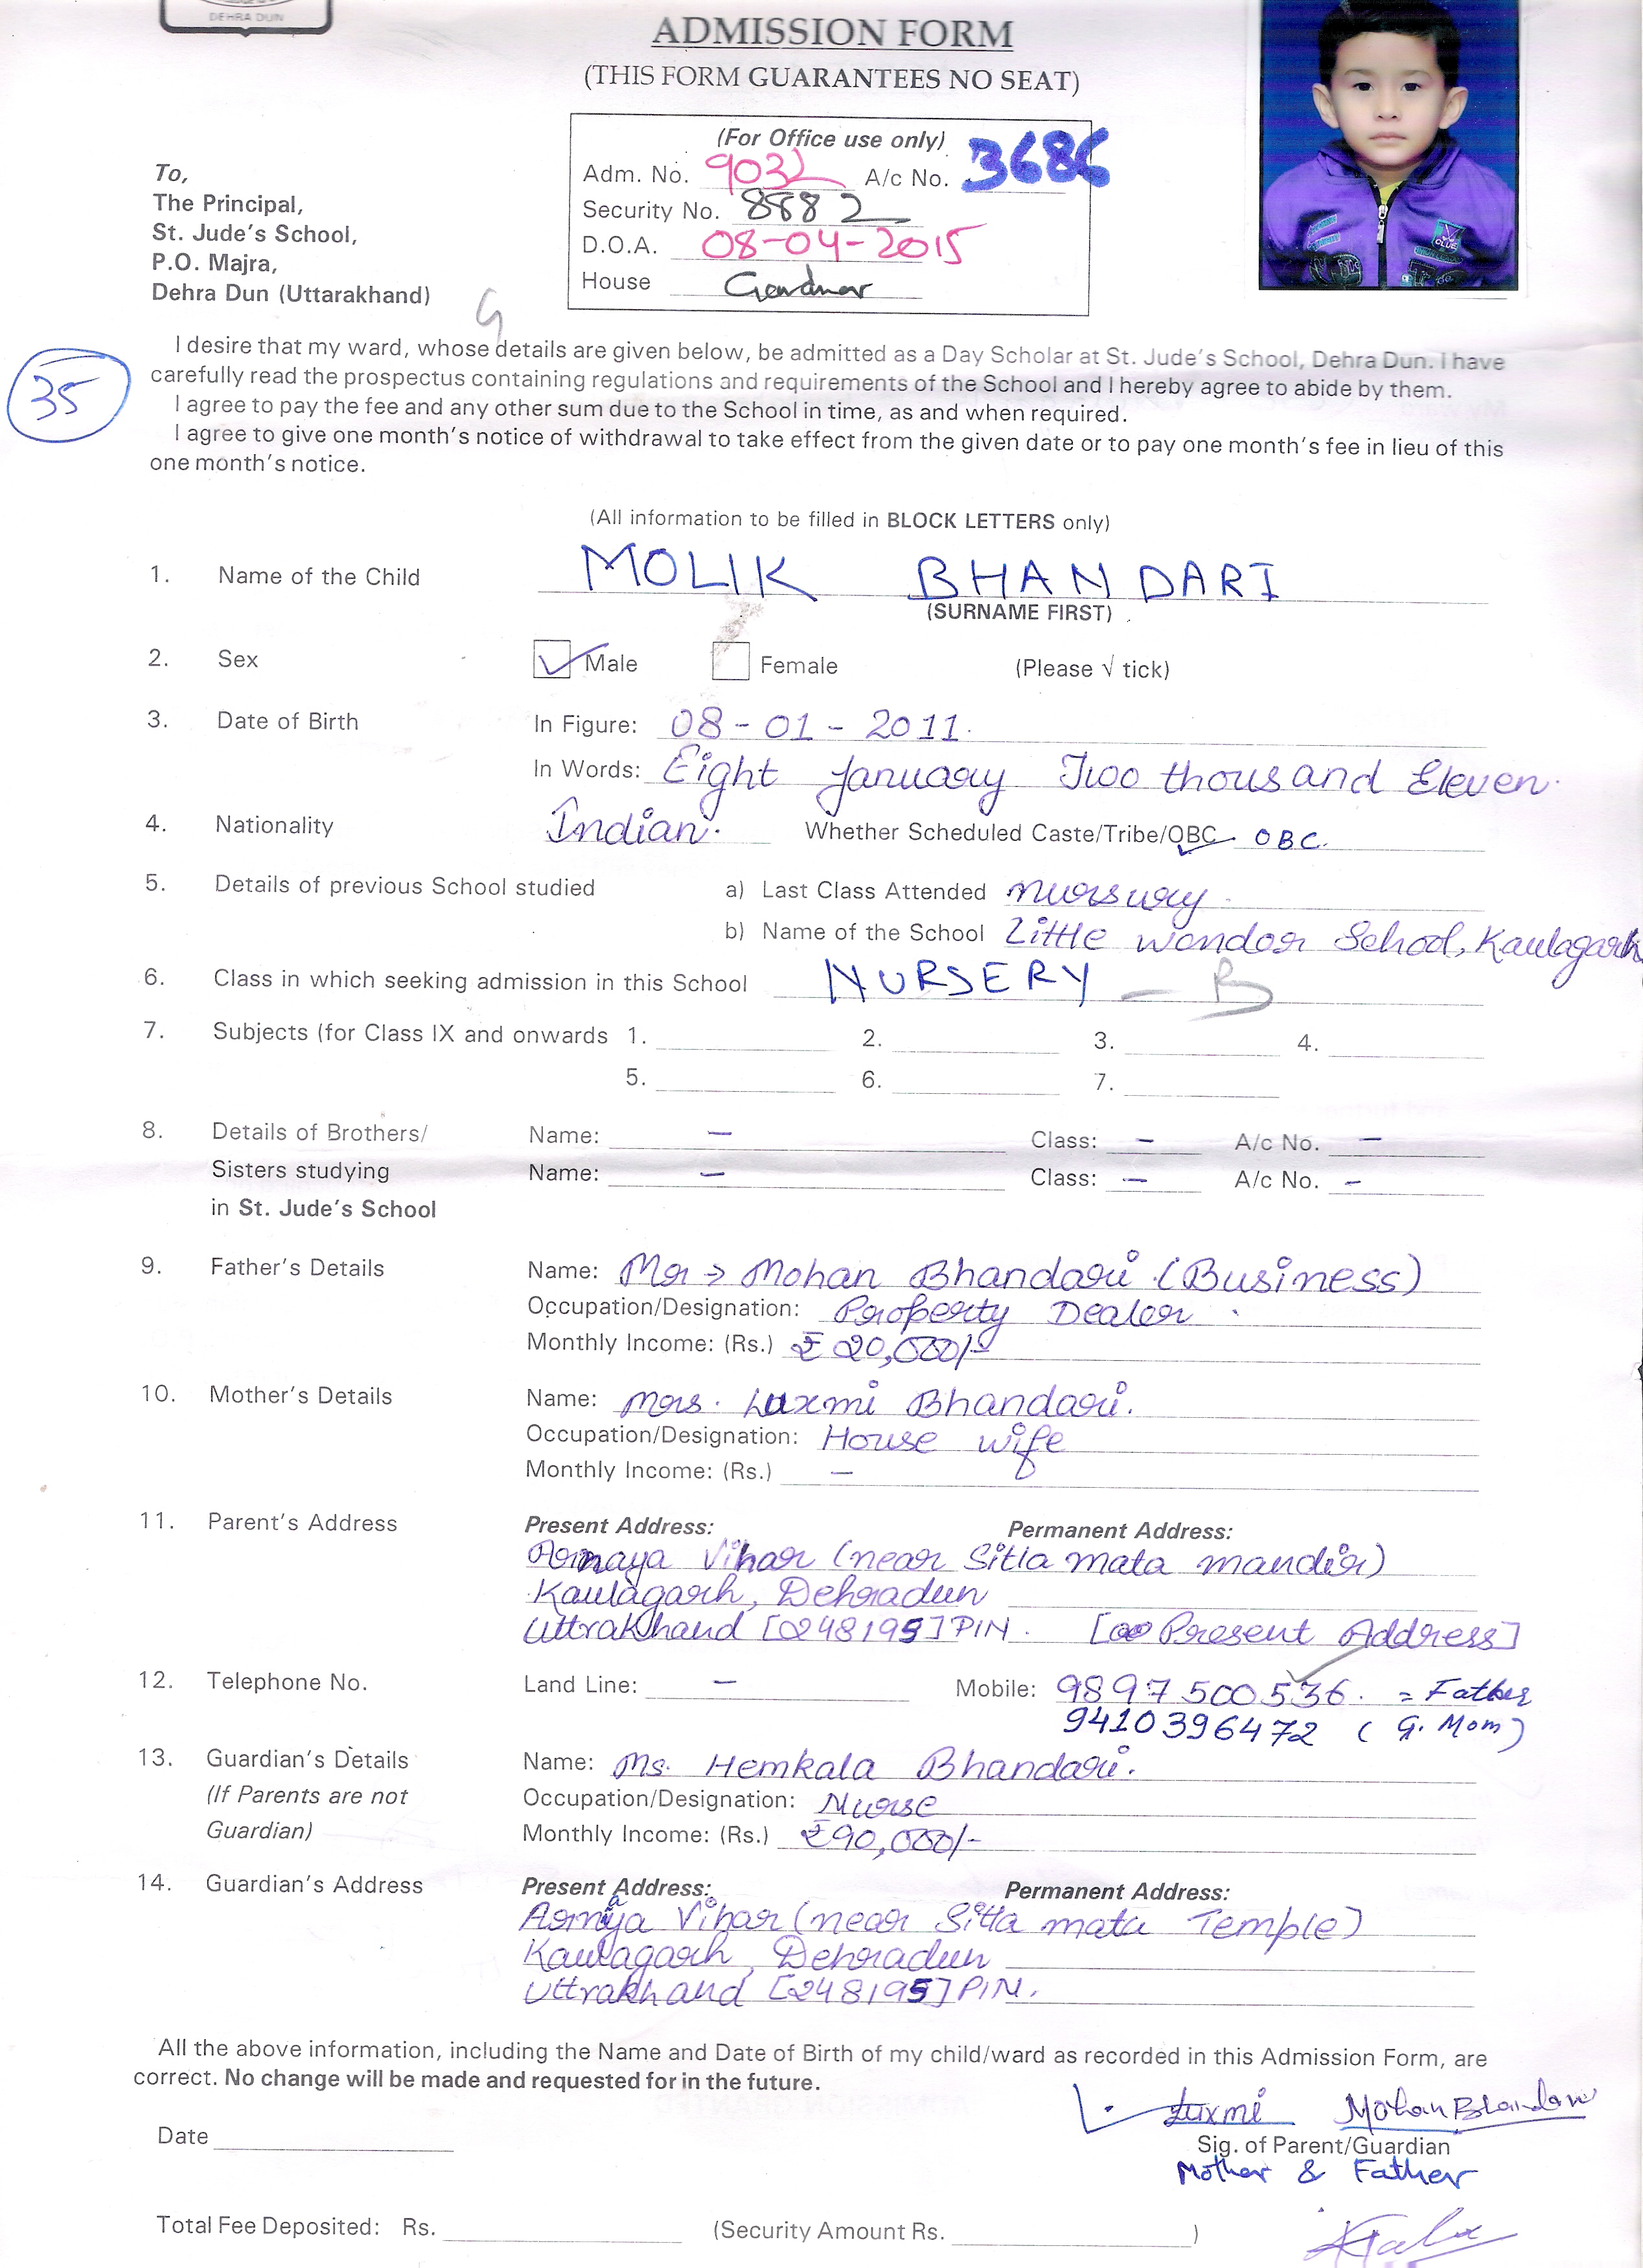 DEHRA DUN
ADMISSION FORM
(THIS FORM GUARANTEES NO SEAT)
(For Office use only)
Adm. No. 9032 A/c No. 3686
Security No. 8882
D.O.A. 08-04-2015
House
To,
The Principal,
St. Jude's School,
P.O. Majra,
Dehra Dun (Uttarakhand)
G
35
I desire that my ward, whose details are given below, be admitted as a Day Scholar at St. Jude's School, Dehra Dun. I have
carefully read the prospectus containing regulations and requirements of the School and I hereby agree to abide by them.
I agree to pay the fee and any other sum due to the School in time, as and when required.
I agree to give one month's notice of withdrawal to take effect from the given date or to pay one month's fee in lieu of this
one month's notice.
(All information to be filled in BLOCK LETTERS only)
1. Name of the Child MOLIK BHANDARI
(SURNAME FIRST)
2. Sex Male Female (Please √ tick)
3. Date of Birth In Figure: 08-01-2011.
In Words: Eight January Two thousand Eleven.
4. Nationality Indian. Whether Scheduled Caste/Tribe/OBC OBC.
5. Details of previous School studied a) Last Class Attended nursury.
b) Name of the School Little wondor School, Kaulagarh
6. Class in which seeking admission in this School NURSERY - B
7. Subjects (for Class IX and onwards 1. 2. 3. 4.
5. 6. 7.
8. Details of Brothers/ Name: - Class: - A/c No. -
Sisters studying Name: - Class: - A/c No. -
in St. Jude's School
9. Father's Details Name: Mr → Mohan Bhandari (Business)
Occupation/Designation: Property Dealer.
Monthly Income: (Rs.) ₹ 20,000/-
10. Mother's Details Name: Mrs. Luxmi Bhandari.
Occupation/Designation: House wife
Monthly Income: (Rs.) -
11. Parent's Address Present Address: Permanent Address:
Vihar (near Sitla mata mandir)
Kaulagarh, Dehradun
Uttrakhand [248195] PIN. [Present Address]
12. Telephone No. Land Line: - Mobile: 9897500536. = Father
9410396472 (G. Mom)
13. Guardian's Details Name: Ms. Hemkala Bhandari.
(If Parents are not Occupation/Designation: Nurse
Guardian) Monthly Income: (Rs.) ₹90,000/-
14. Guardian's Address Present Address: Permanent Address:
Vihar (near Sitla mata Temple)
Kaulagarh, Dehradun
Uttrakhand [248195] PIN.
All the above information, including the Name and Date of Birth of my child/ward as recorded in this Admission Form, are
correct. No change will be made and requested for in the future.
Luxmi Mohan Bhandari
Date Sig. of Parent/Guardian
Mother & Father
Total Fee Deposited: Rs. (Security Amount Rs. )